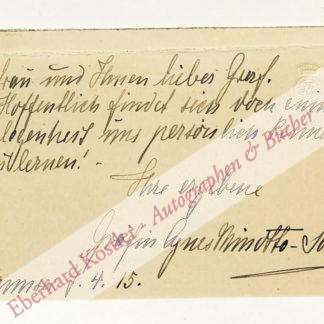 frau und Ihnen lieber Graf.
Hoffentlich findet sich doch einm
legenheit uns persönlich kenne
zulernen! –
Ihre ergebene
Gräfin Agnes Minotto-So
4. 15.
Eberhard Köstler Autographen & Bücher